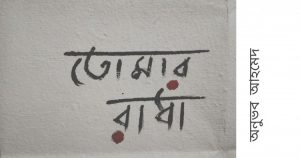 তোমার
রাধা
অনুভব আহমেদ